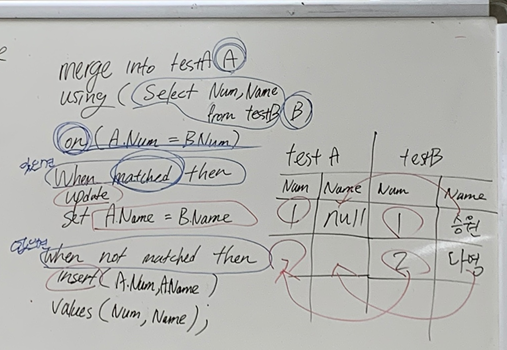 merge into testA A
using ((Select Num,Name
from testB) B
on (A.Num = B.Num)
When matched then
update
Set A.Name = B.Name
When not matched then
insert (A.Num, A.Name)
Values (Num, Name);
test A testB
Num Name Num Name
1 null 1
2